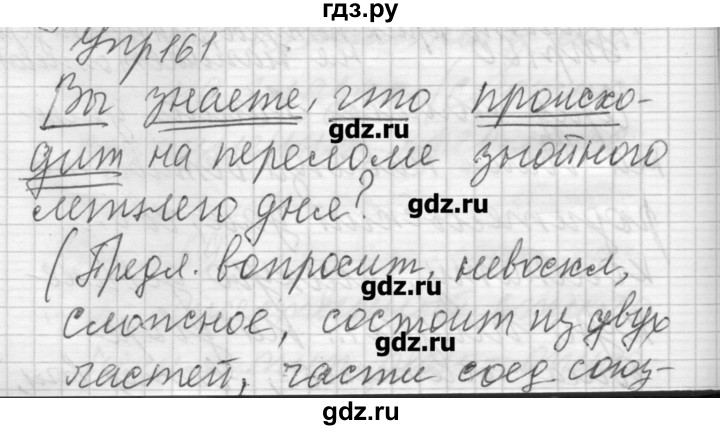 гдз.ру
Упр 161
Вы знаете, что происхо-
gdz.ru
дит на переломе знойного
летнего дня?
gdz.ru
(Предл. вопросит, невоскл,
gdz.ru
сложное, состоит из двух
gdz.ru
частей, части соед союз-
gdz.ru